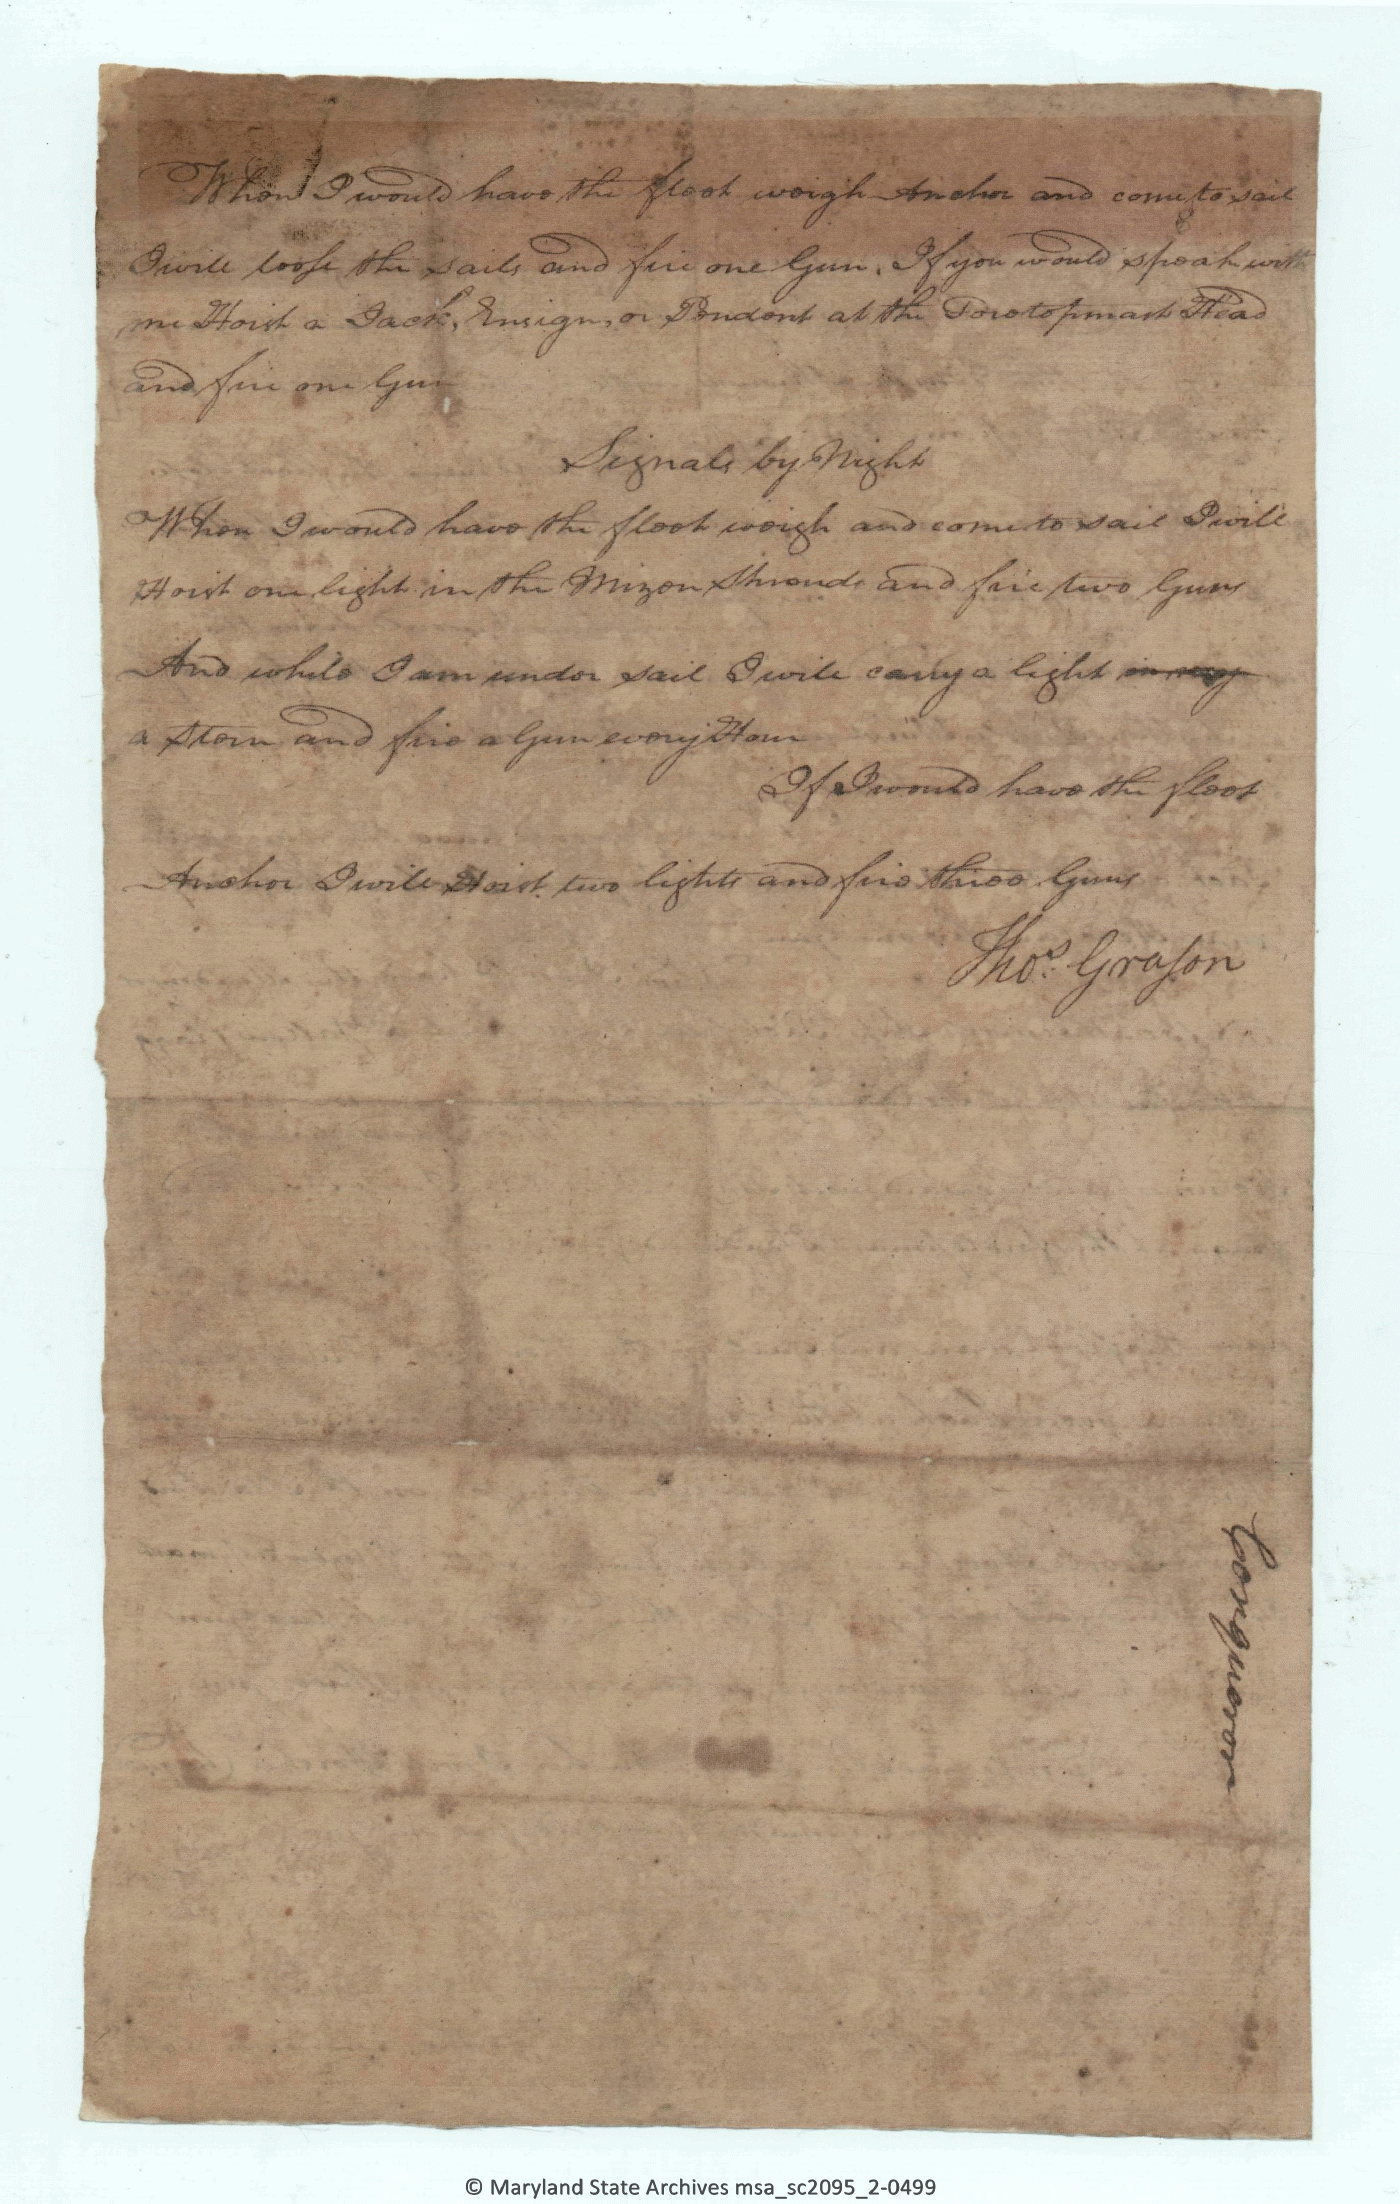 When I would have the fleet weigh Anchor and come to sail
I will loose the sails and fire one Gun. If you would speak with
me Hoist a Jack, Ensign, or Pendent at the Foretopmast Head
and fire one Gun
Signals by Night
When I would have the fleet weigh and come to sail I will
Hoist one light in the Mizen Shrouds and fire two Guns
And while I am under sail I will carry a light in my
a Stern and fire a Gun every Hour
If I would have the fleet
Anchor I will Hoist two lights and fire three Guns
Thos. Grason
Conqueror
© Maryland State Archives msa_sc2095_2-0499